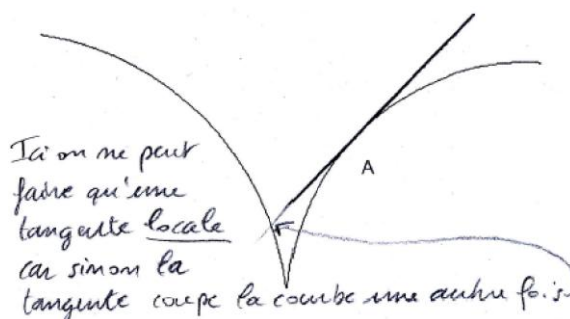 A
Ici on ne peut
faire qu'une
tangente locale
car sinon la
tangente coupe la courbe une autre fois.